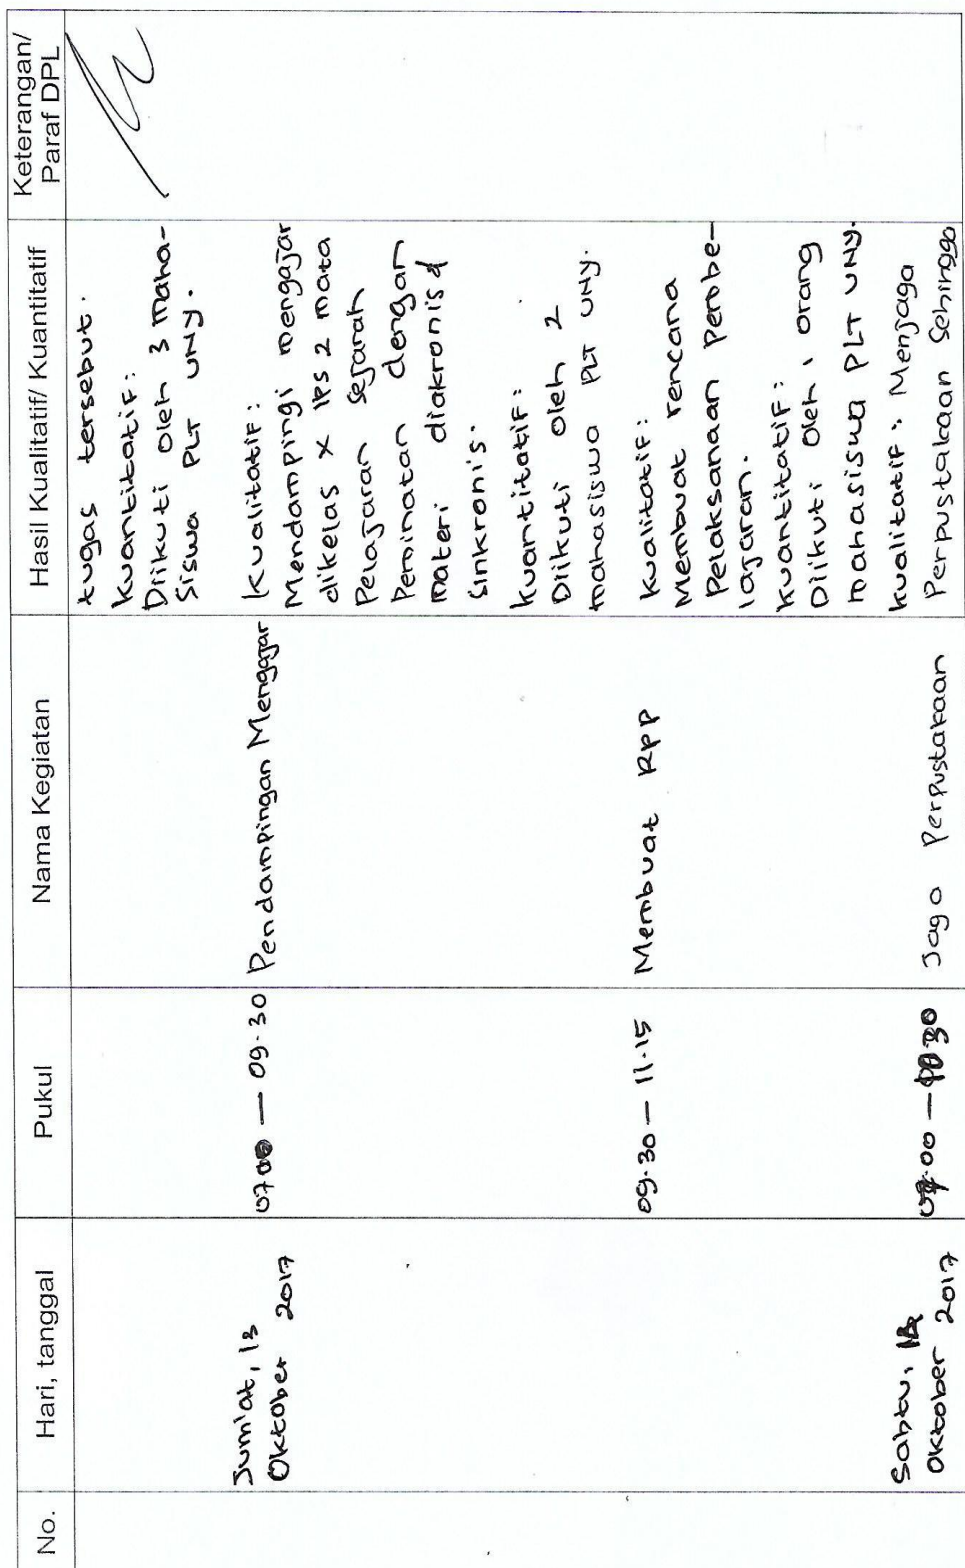 No. Hari, tanggal Pukul Nama Kegiatan Hasil Kualitatif/ Kuantitatif Keterangan/
Paraf DPL
tugas tersebut.
Kuantitatif:
Diikuti oleh 3 maha-
siswa PLT UNY.
Jum'at, 13
Oktober 2017
0700 — 09.30
Pendampingan Mengajar
Kualitatif:
Mendampingi mengajar
dikelas X IPS 2 mata
Pelajaran Sejarah
Peminatan dengan
materi diakronis &
Sinkronis.
Kuantitatif:
Diikuti oleh 2
mahasiswa PLT UNY.
09.30 — 11.15
Membuat RPP
Kualitatif:
Membuat rencana
Pelaksanaan Pembe-
lajaran.
Kuantitatif:
Diikuti oleh 1 orang
mahasiswa PLT UNY.
Sabtu,
Oktober 2017
Jaga Perpustakaan
Kualitatif: Menjaga
Perpustakaan Sehingga